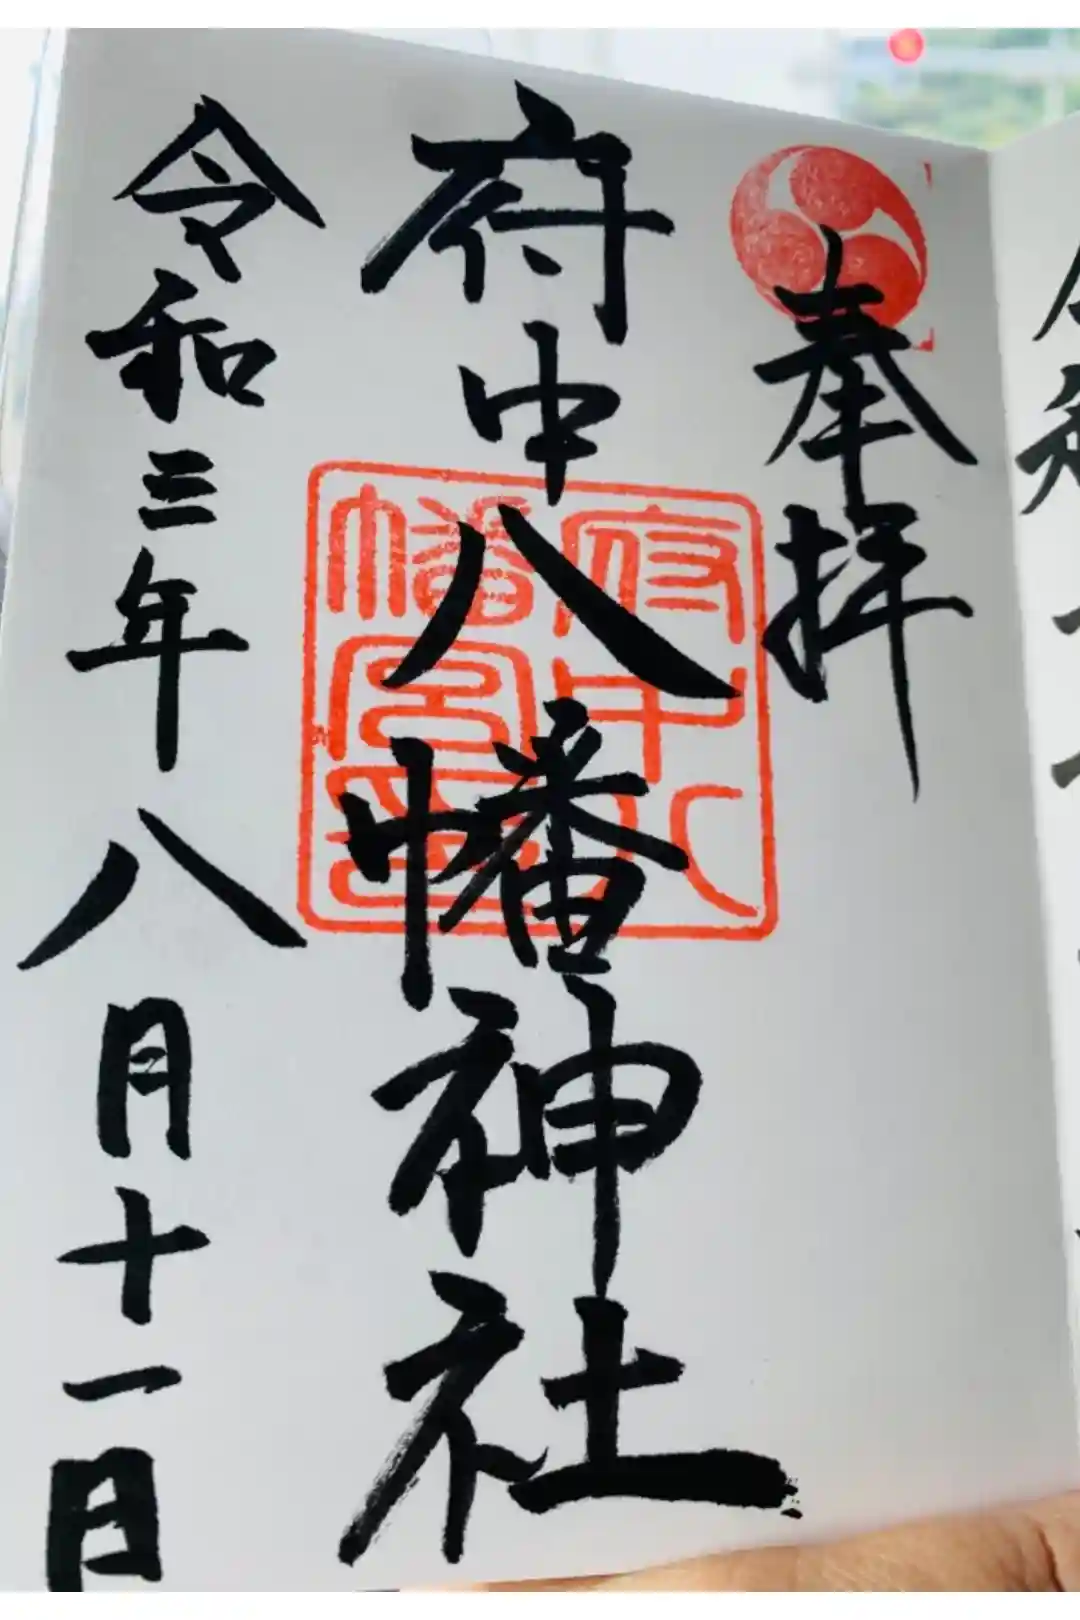 奉拝
府中八幡神社
府中八
幡宮印
令和三年八月十一日